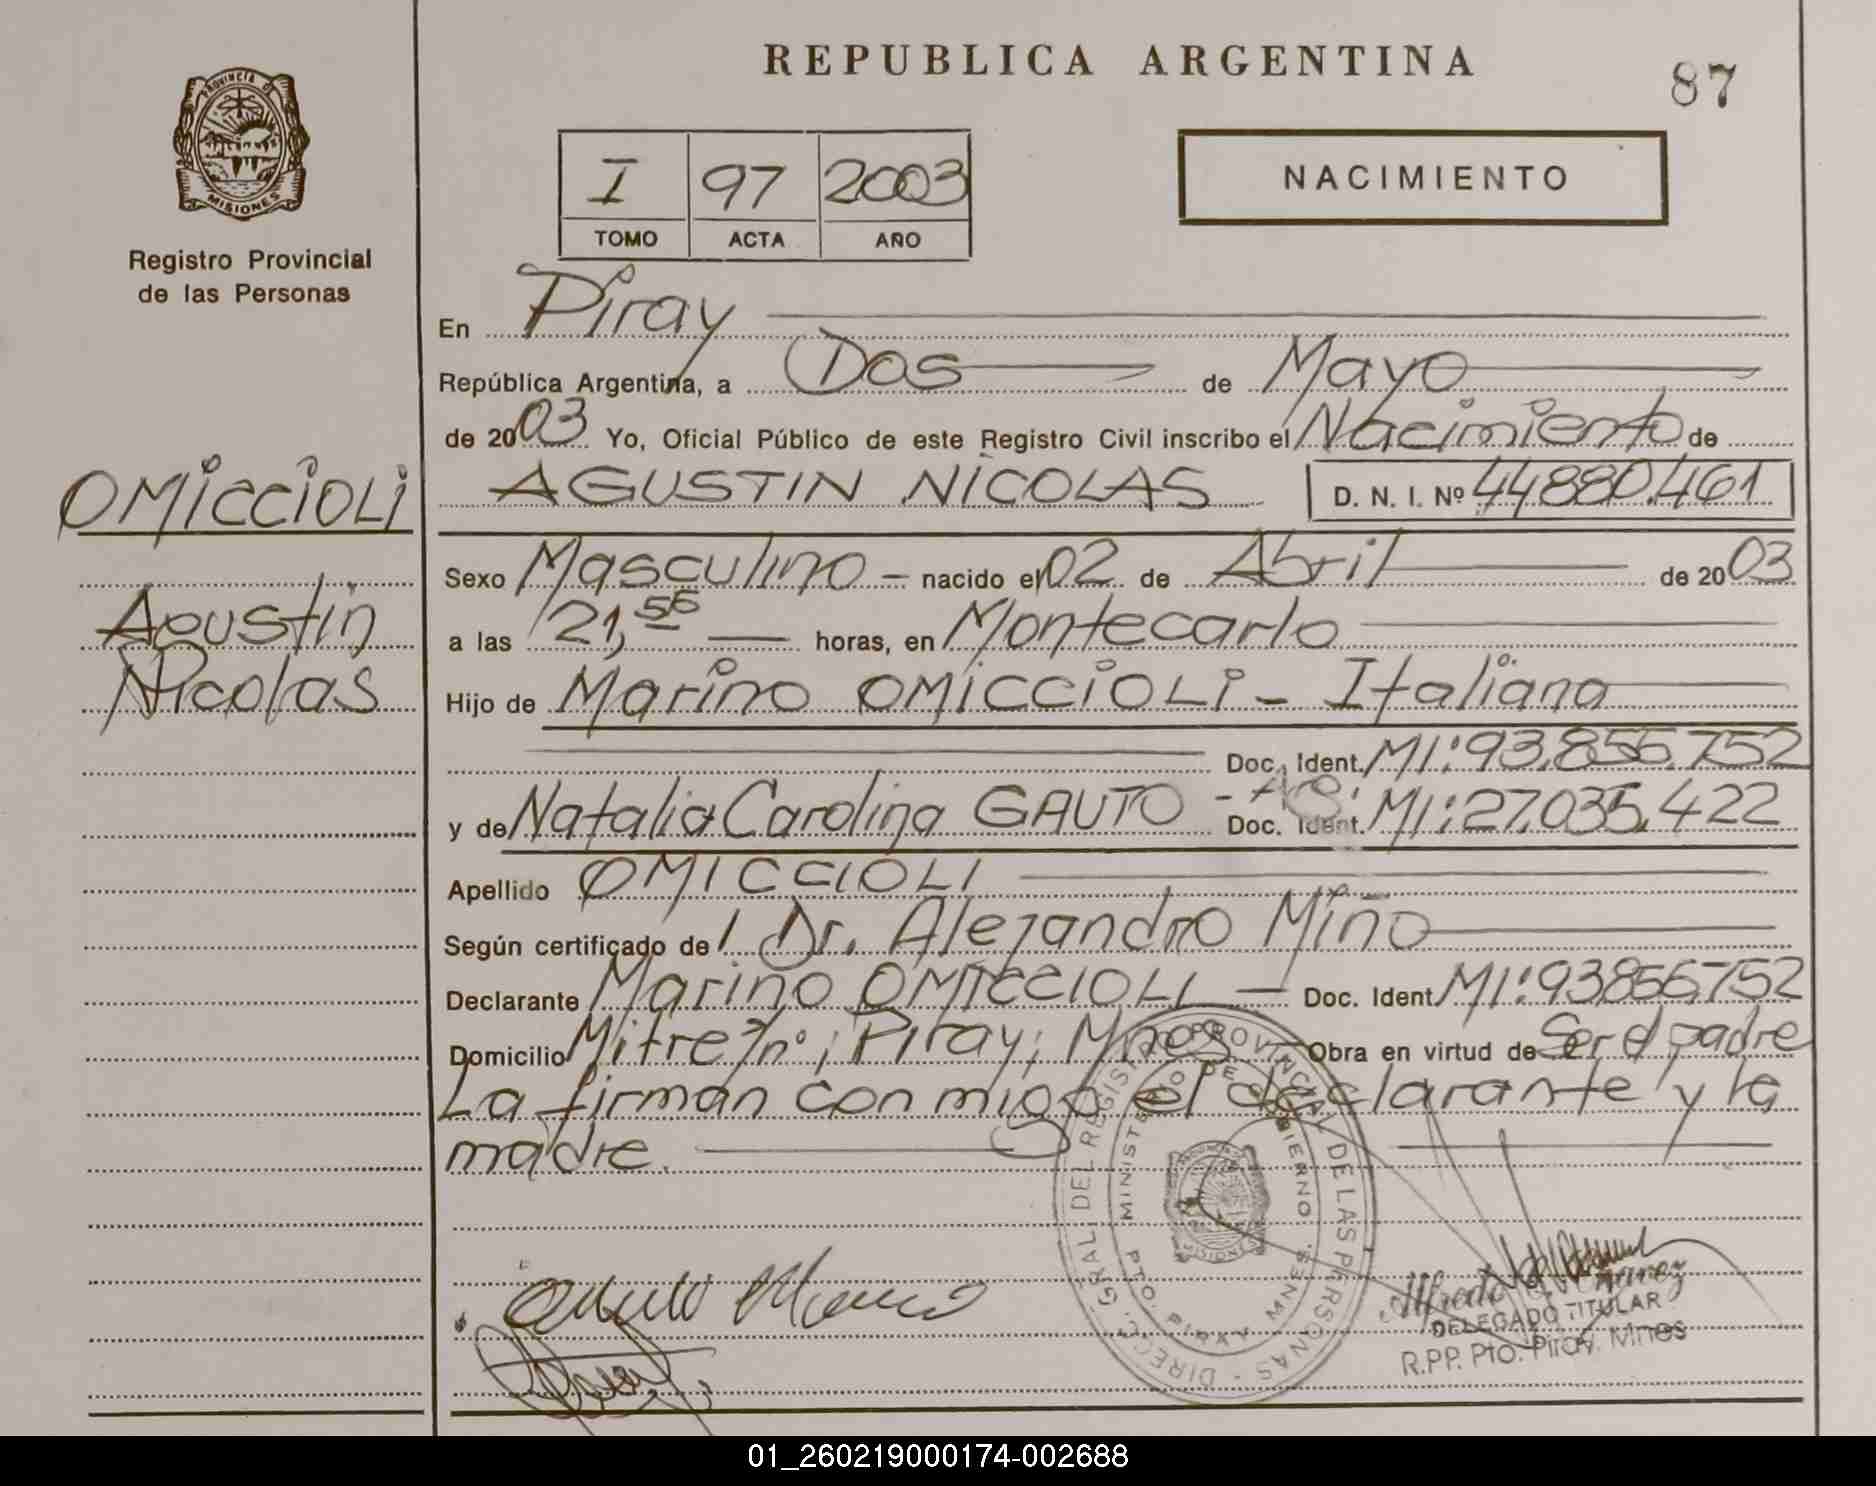 REPUBLICA ARGENTINA
87
PROVINCIA DE
MISIONES
Registro Provincial
de las Personas
I 97 2003
TOMO ACTA AÑO
NACIMIENTO
En Piray
República Argentina, a Dos de Mayo
de 2003 Yo, Oficial Público de este Registro Civil inscribo el Nacimiento de
OMICCIOLI
AGUSTIN NICOLAS D. N. I. Nº 44880.461
Sexo Masculino - nacido el 02 de Abril de 2003
Agustin
a las 21,56 horas, en Montecarlo
Nicolas
Hijo de Marino OMICCIOLI - Italiana
Doc. Ident. MI: 93.856.752
y de Natalia Carolina GAUTO - Doc. Ident. MI: 27.035.422
Apellido OMICCIOLI
Según certificado de Dr. Alejandro Miño
Declarante Marino OMICCIOLI - Doc. Ident MI: 93.856.752
Domicilio Mitre s/nº; Piray; Mnes Obra en virtud de Ser el padre
La firman con migo el declarante y la
madre.
DIRECC. GRAL. DEL REGISTRO PROVINCIAL DE LAS PERSONAS -
MINISTERIO DE GOBIERNO
PTO. PIRAY MNES.
MISIONES
DELEGADO TITULAR
R.P.P. Pto. Piray. Mnes
01_260219000174-002688